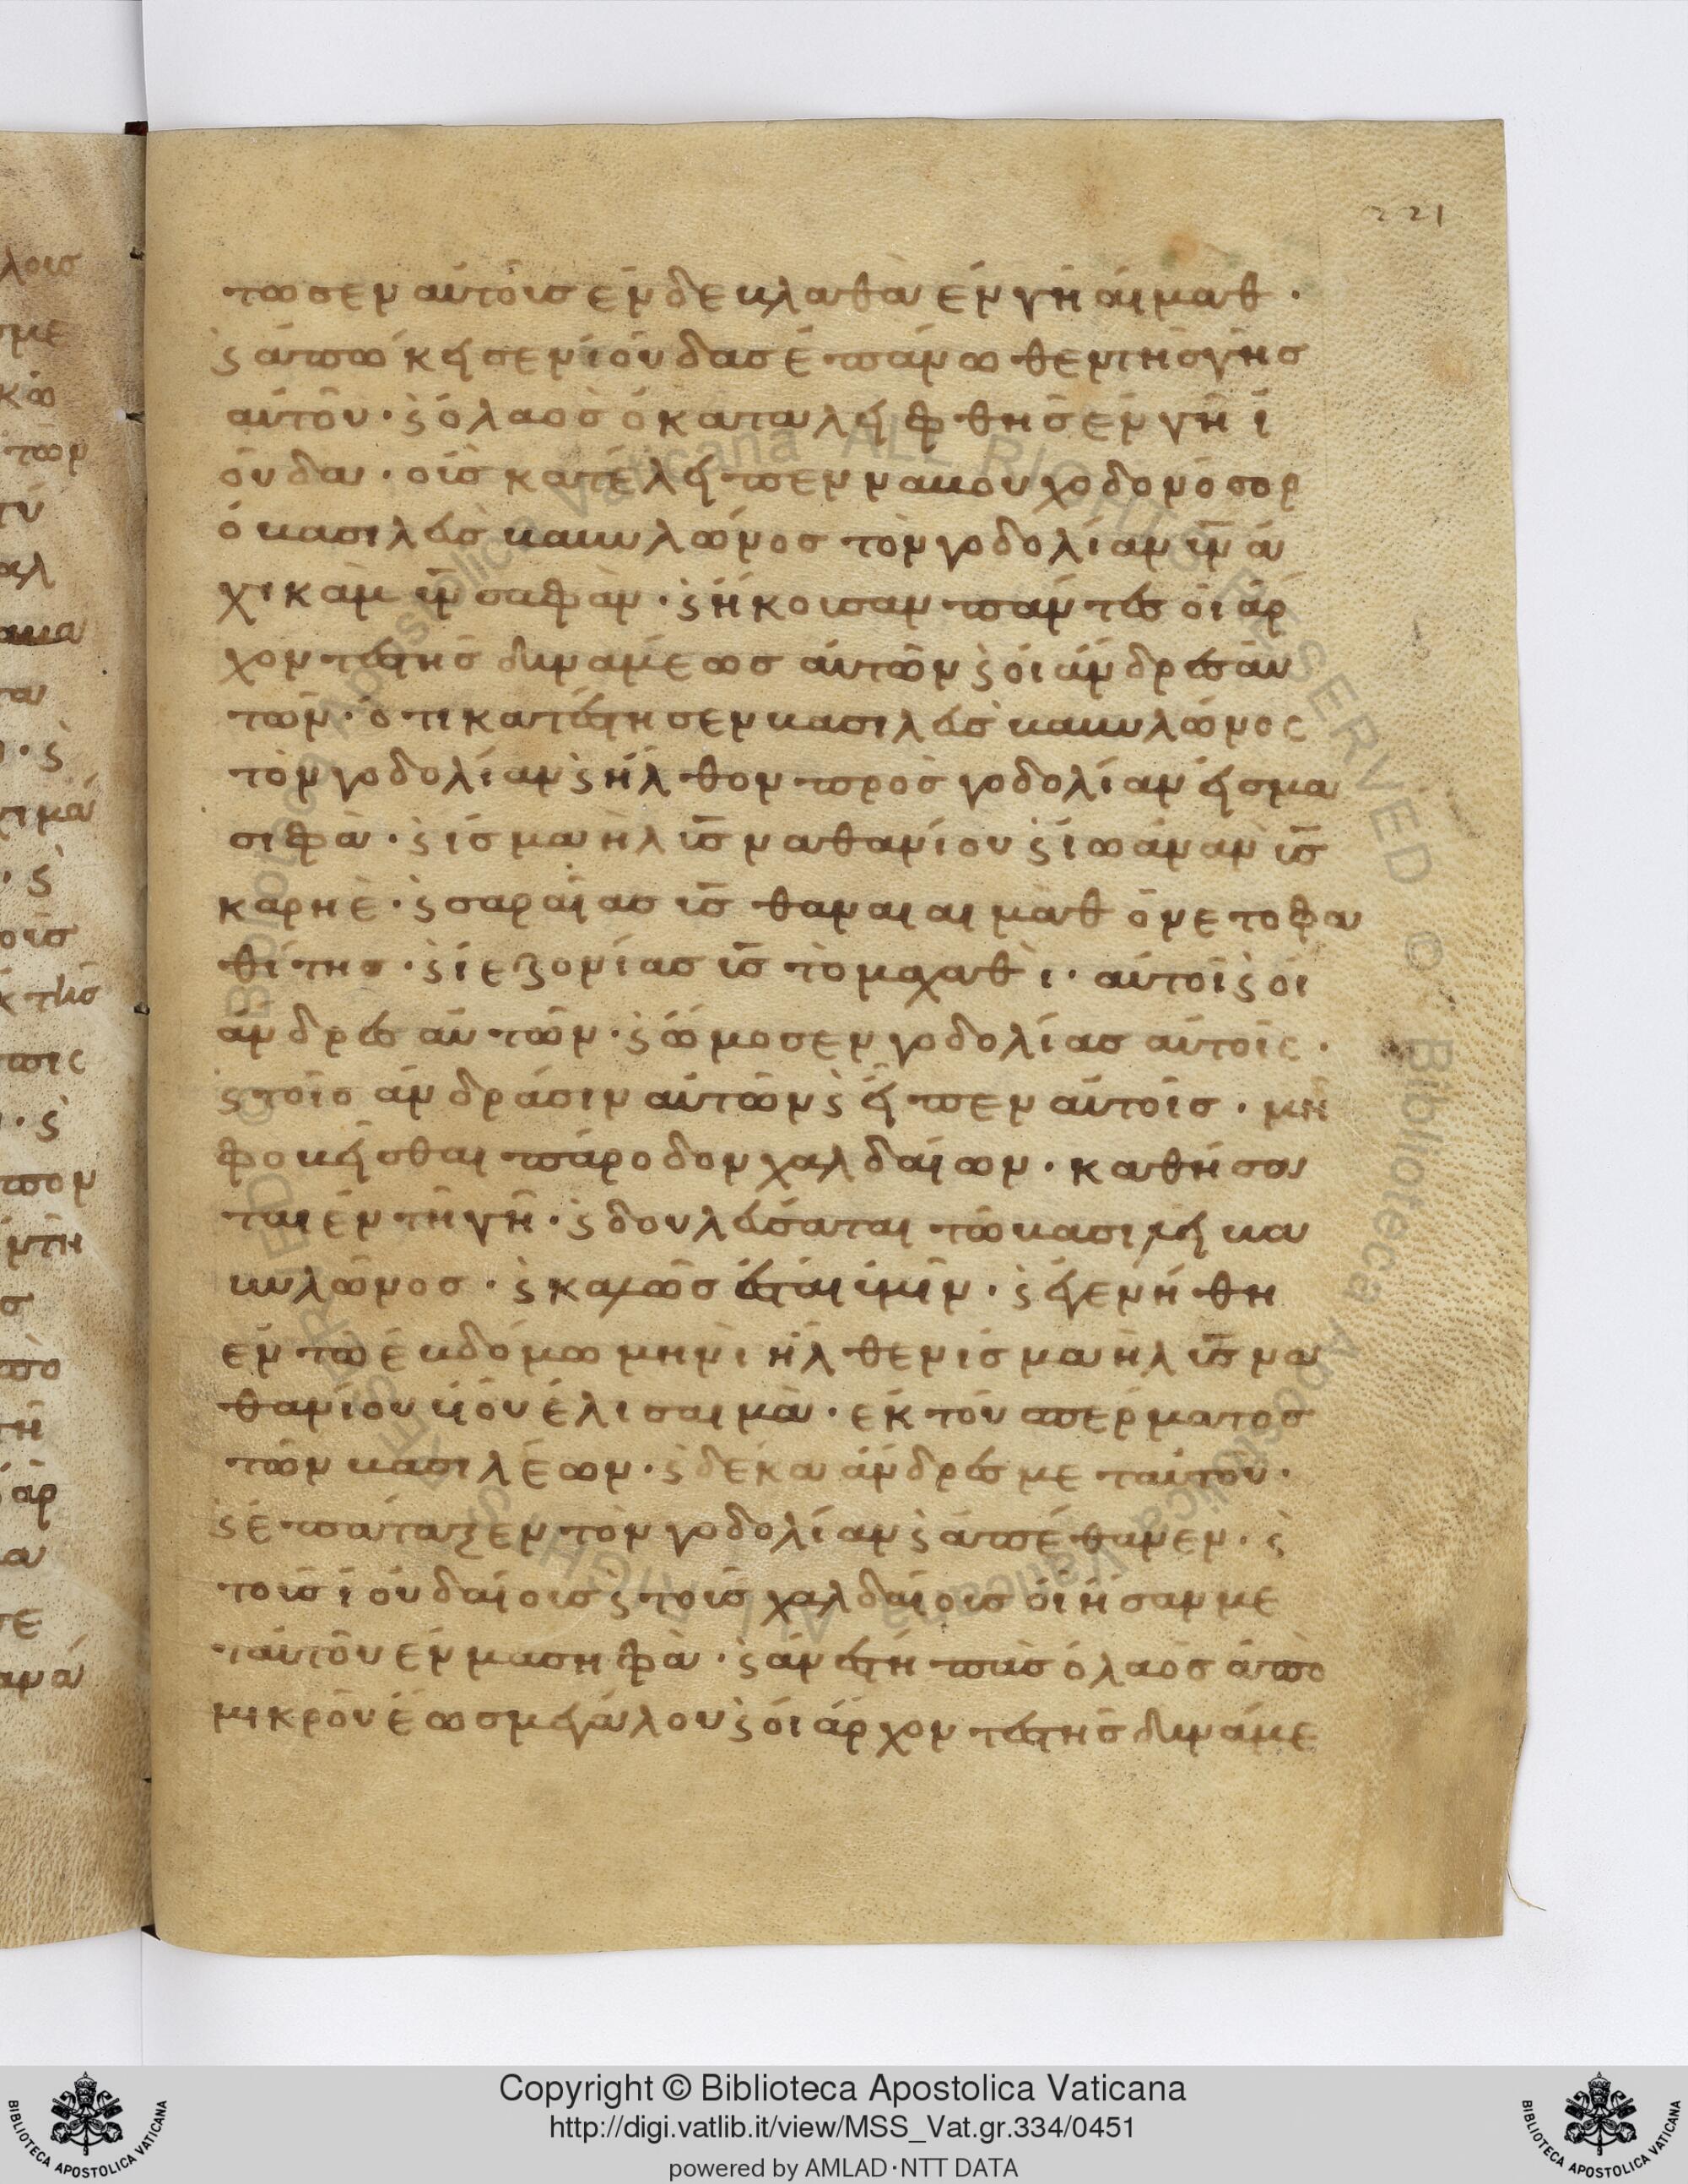 221
τωσεν αὐτοὺσ ἐν δεβλαθὰ ἐν γῆ αἱμαθ·
ϛ ἀπωκήσεν ἰούδασ ἐπάνωθεν τῆσ γῆσ
αὐτοῦ· ϛ ὁ λαοσ ὁ καταλήφθησ ἐν γῆ ἰ
ούδα· οὑσ κατέλήπεν ναβουχοδονόσορ
ὁ βασιλεὺσ βαβυλῶνοσ τὸν γοδολίαν ῡν ἀ
χικὰμ ῡν σαφὰν· ϛ ἤκουσαν πάντεσ οἱ ἄρ
χοντεστῆσ δυνάμεωσ αὐτῶν ϛ οἱ ἄνδρεσ αὐ
τῶν· ὅτι κατέστησεν βασιλεὺσ βαβυλῶνοσ
τὸν γοδολίαν ϛ ἦλθον προσ γοδολίαν εἰσμα
σιφὰ· ϛ ἰσμαὴλ ῡσ ναθανίου ϛ ἰωάναν ῡσ
καρηὲ· ϛ σαραίασ ῡσ θαναιαιμὰθ ὁ νετοφα
θίτησ· ϛ ἰεζονίασ ῡσ τὸ μαχαθὶ· αὐτοὶ ϛ οἱ
ἄνδρεσ αὐτῶν· ϛ ὤμοσεν γοδολίασ αὐτοῖσ·
ϛ τοῖσ ἀνδράσιν αὐτῶν ϛ εἶπεν αὐτοῖσ· μὴ
φοβεῖσθαι πάροδον χαλδαίων· καθήσα
ται ἐν τῆ γῆ· ϛ δουλεύσαται τῶ βασιλεῖ βα
βυλῶνοσ· ϛ καλῶσ ἔσται ὑμῖν· ϛ ἐγενήθη
ἐν τῶ ἑβδόμω μηνὶ ἦλθεν ἰσμαὴλ ῡσ να
θανίου ὑιοῦ ἐλισαιμὰ· ἐκ τοῦ σπέρματοσ
τῶν βασιλέων· ϛ δέκα ἄνδρεσ μεταὐτοῦ·
ϛ ἐπάταξεν τὸν γοδολίαν ϛ ἀπέθανεν· ϛ
τοὺσ ἰουδαίουσ ϛ τοὺσ χαλδαίουσ οἳ ἦσαν με
ταὐτοῦ ἐν μασηφὰ· ϛ ἀνέστη πᾶσ ὁ λαὸσ ἀπὸ
μικροῦ ἕωσ μεγάλου ϛ οἱ ἄρχοντεστῆσ δυνάμε
Copyright © Biblioteca Apostolica Vaticana
http://digi.vatlib.it/view/MSS_Vat.gr.334/0451
powered by AMLAD·NTT DATA
BIBLIOTECA APOSTOLICA VATICANA
BIBLIOTECA APOSTOLICA VATICANA